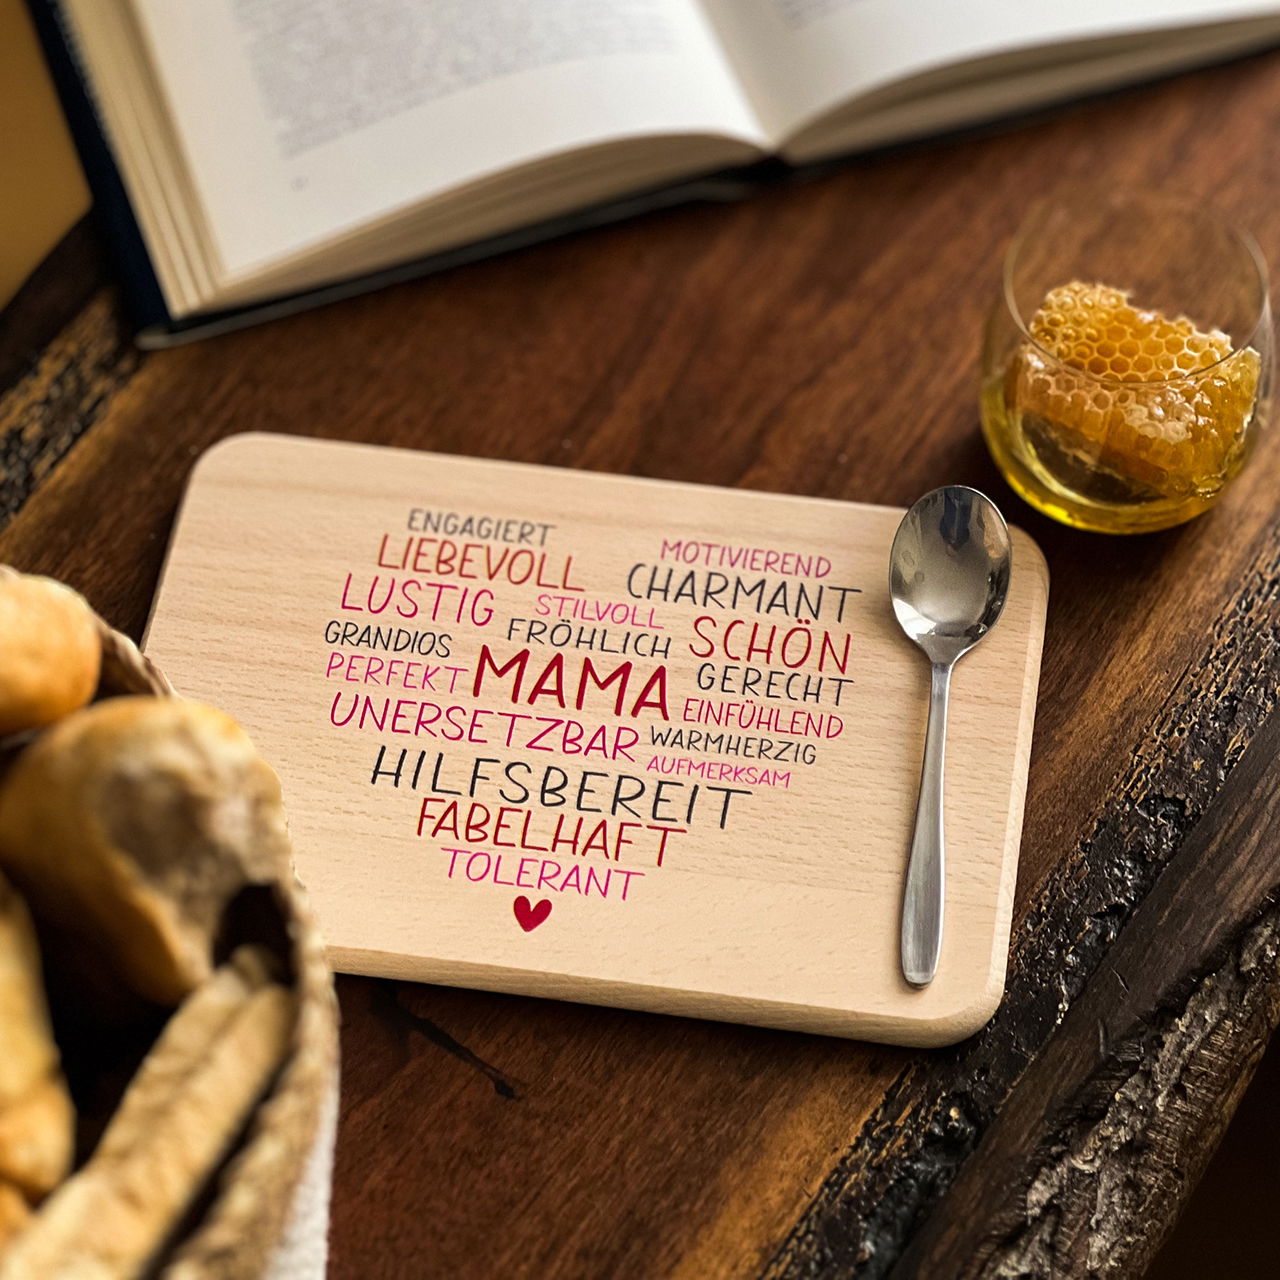 ENGAGIERT
LIEBEVOLL
MOTIVIEREND
LUSTIG
STILVOLL
CHARMANT
GRANDIOS
FRÖHLICH
SCHÖN
PERFEKT
MAMA
GERECHT
UNERSETZBAR
EINFÜHLEND
WARMHERZIG
HILFSBEREIT
AUFMERKSAM
FABELHAFT
TOLERANT